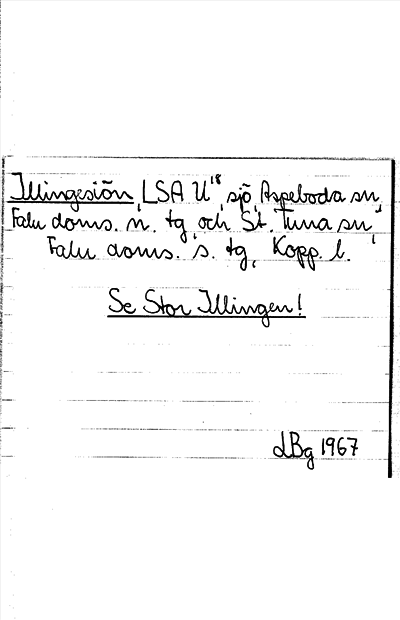 Illingesiön, LSA U¹⁸, sjö, Aspeboda sn,
Falu doms. n. tg och St. Tuna sn,
Falu doms. s. tg, Kopp. l.
Se Stor Illingen!
LBg 1967